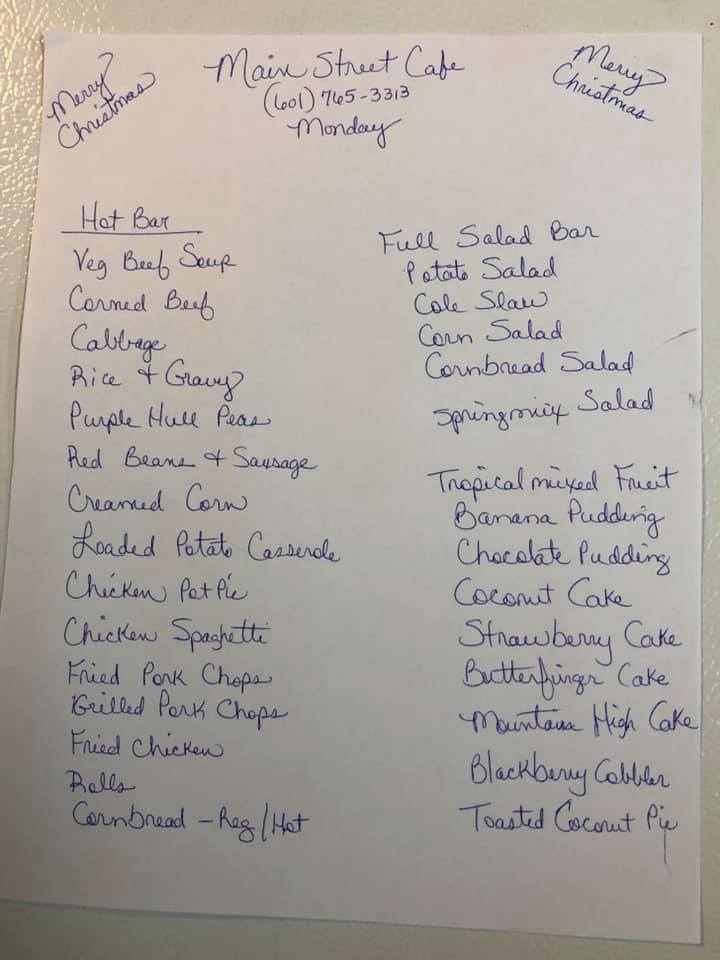 Merry
Christmas
Main Street Cafe
(601) 765-3313
Monday
Merry
Christmas
Hot Bar
Veg Beef Soup
Corned Beef
Cabbage
Rice + Gravy
Purple Hull Peas
Red Beans + Sausage
Creamed Corn
Loaded Potato Casserole
Chicken Pot Pie
Chicken Spaghetti
Fried Pork Chops
Grilled Pork Chops
Fried Chicken
Rolls
Cornbread - Reg/Hot
Full Salad Bar
Potato Salad
Cole Slaw
Corn Salad
Cornbread Salad
Springmix Salad
Tropical mixed Fruit
Banana Pudding
Chocolate Pudding
Coconut Cake
Strawberry Cake
Butterfinger Cake
Mountain High Cake
Blackberry Cobbler
Toasted Coconut Pie